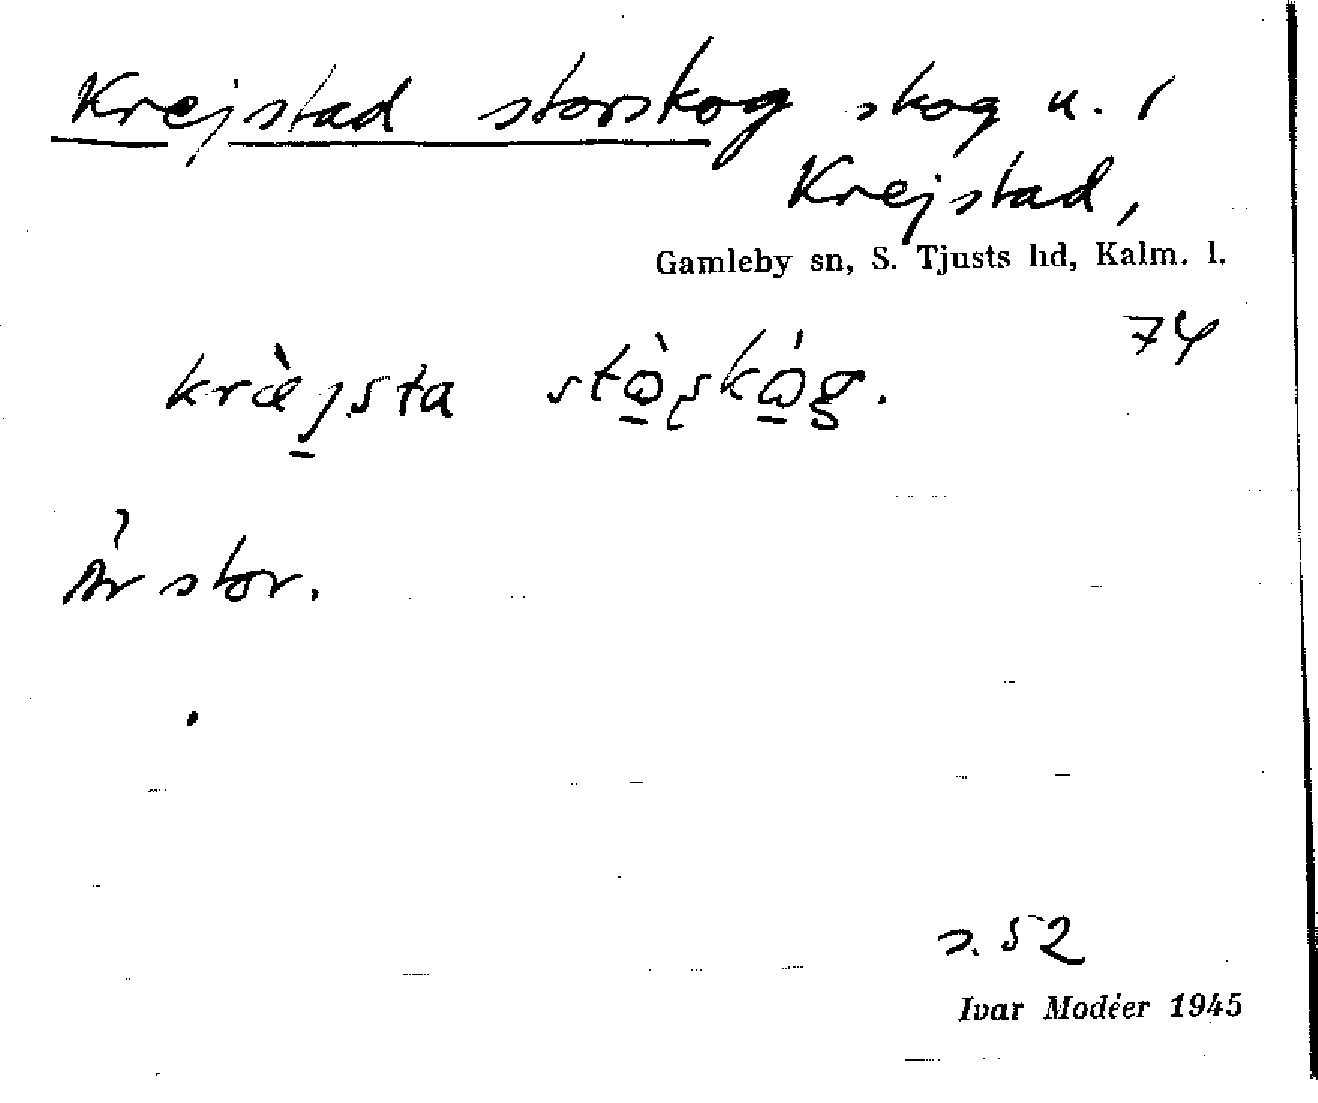 Krejstad storskog skog u. /
Krejstad,
Gamleby sn, S. Tjusts hd, Kalm. l.
74
kræ̀jsta stòşkóg.
Är stor.
s. 52
Ivar Modéer 1945